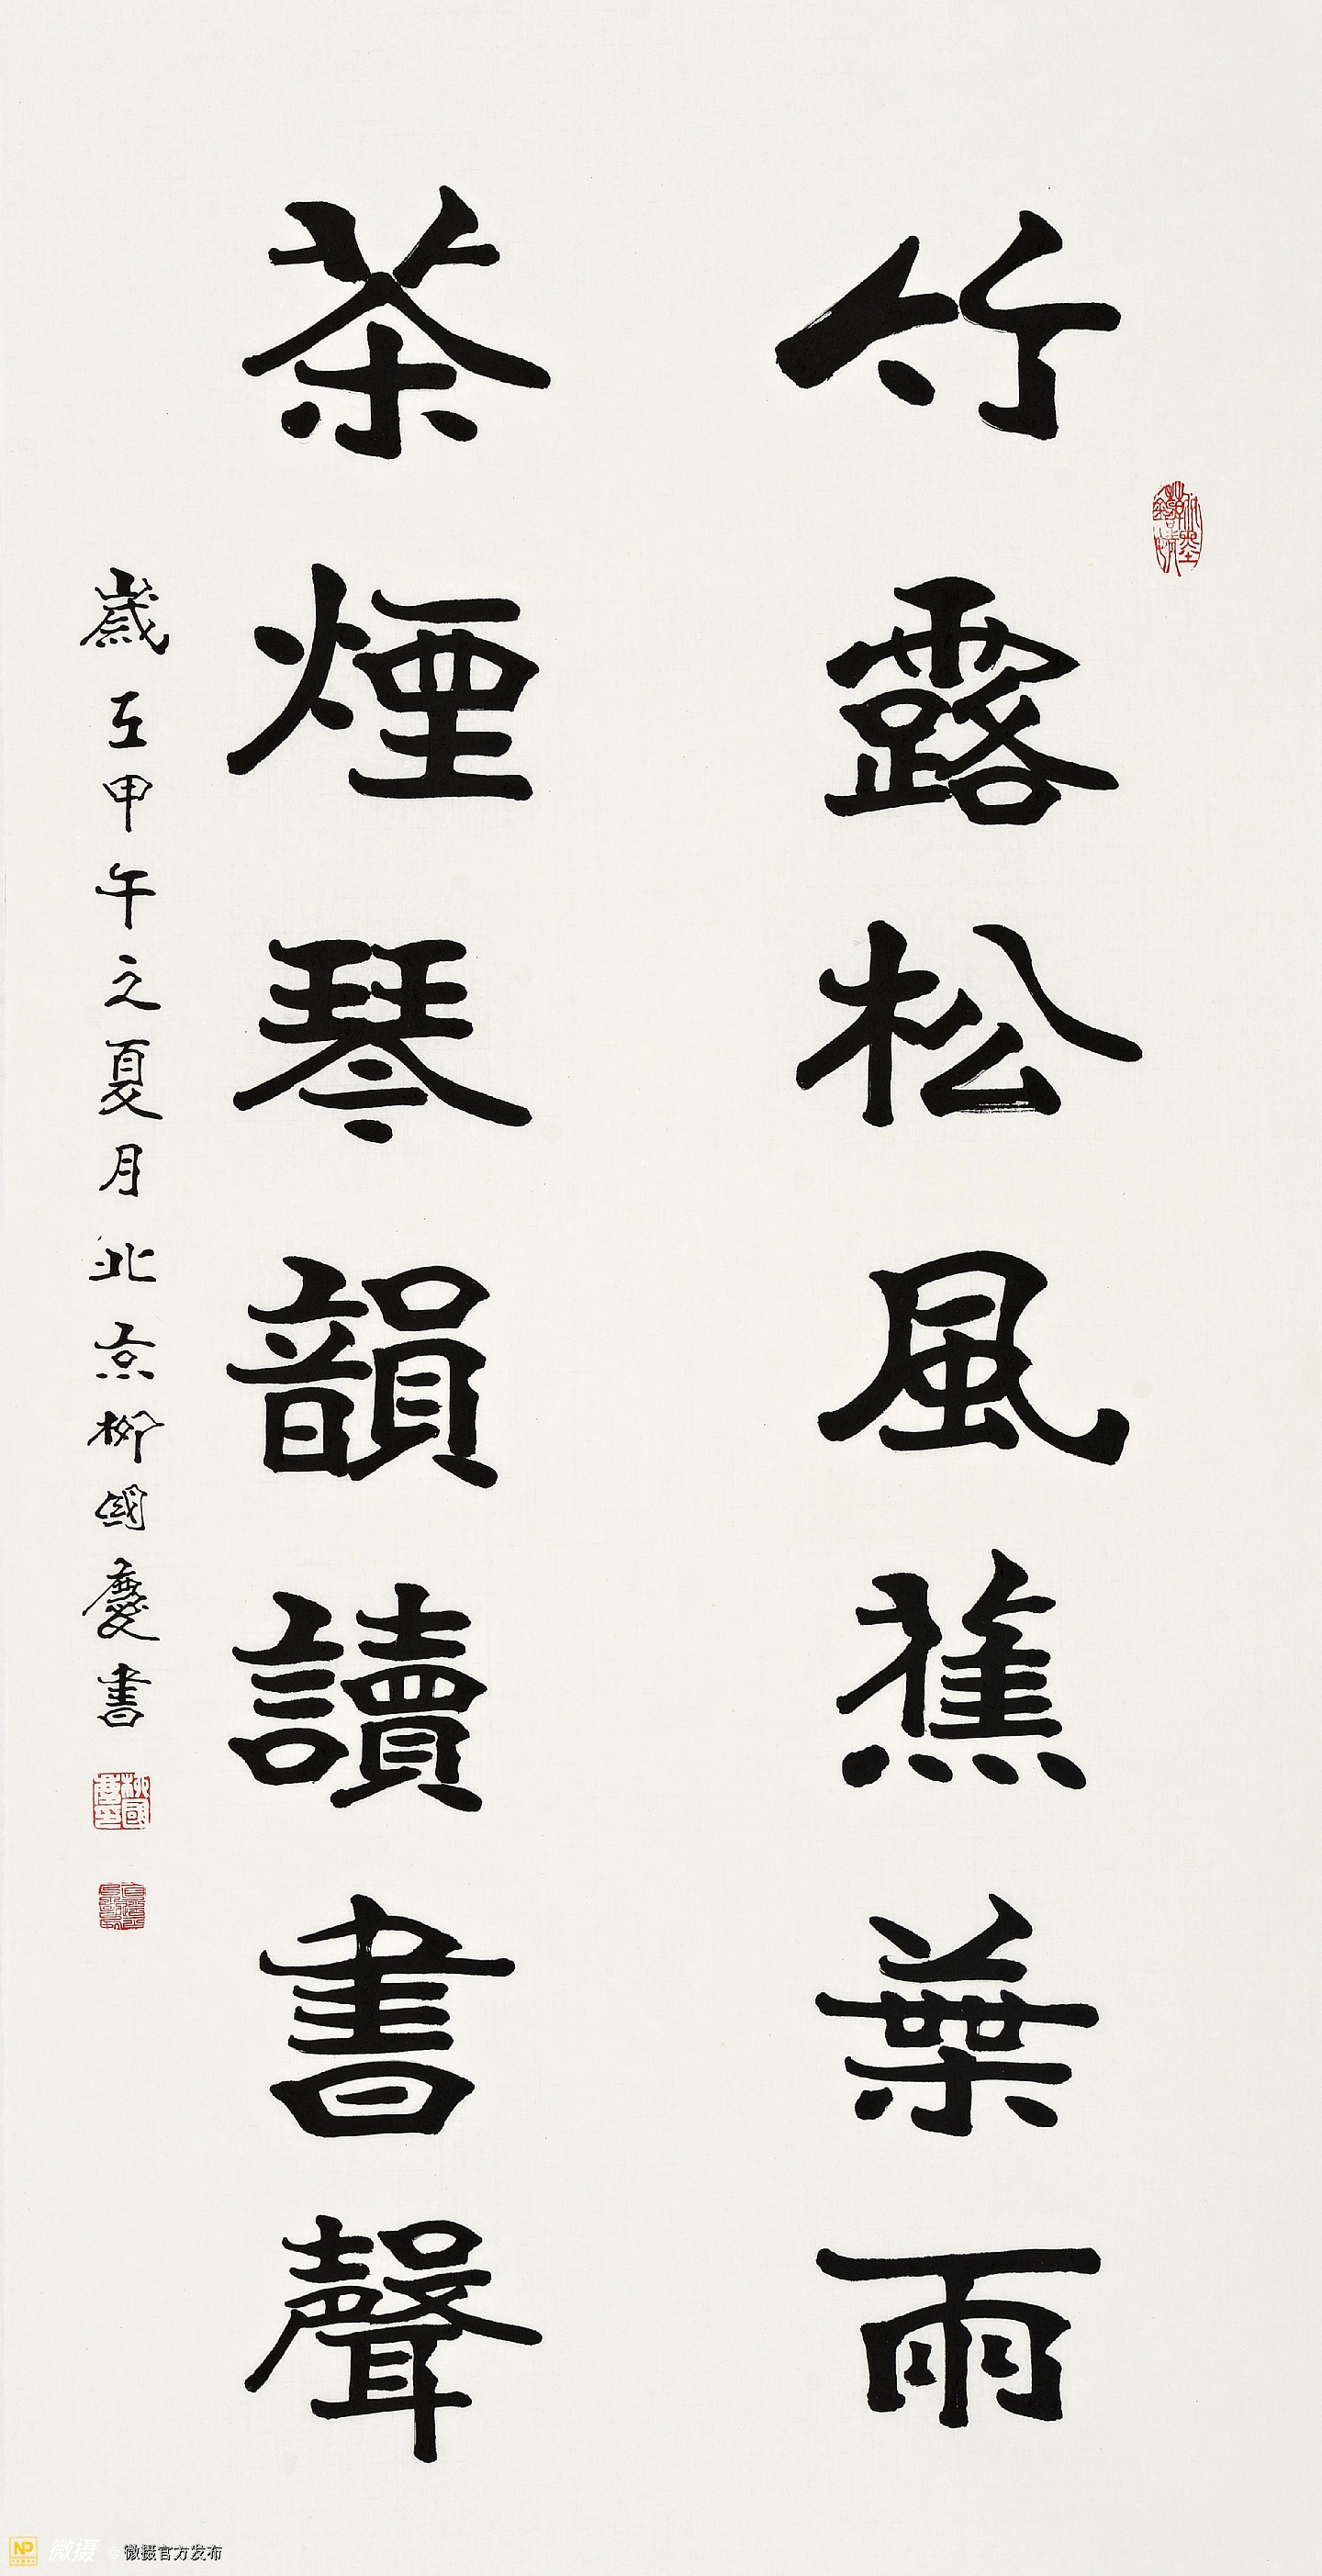 竹露松風蕉葉雨
茶煙琴韻讀書聲
歲在甲午之夏月北京柳國慶書
NP 微摄 微摄官方发布